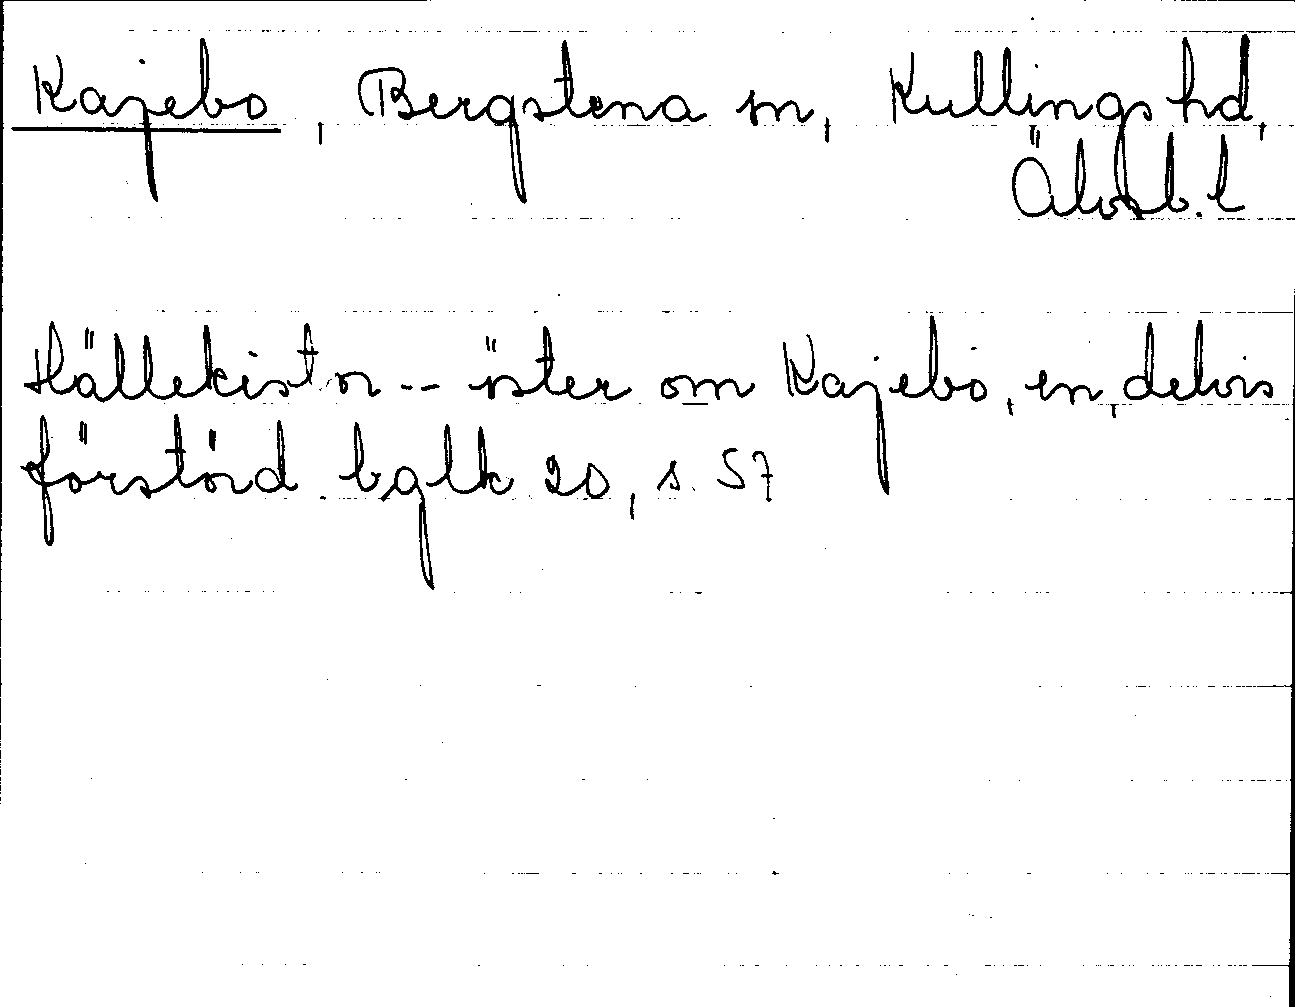 Kajebo, Bergstena sn, Kullings hd,
Älvsb. l
Hällekistor -- öster om Kajebo, en, delvis
förstörd bglk 20, s. 57